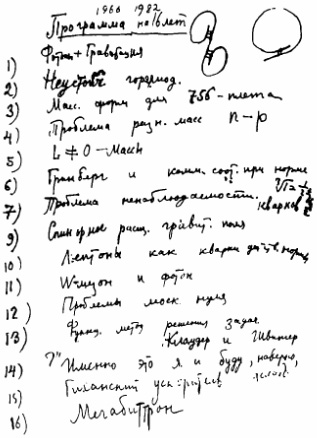 1966 1982
Программа на 16 лет
1) Фотон + Гравитация
2) Неустойч. гориз.
3) Масс. форм для 756-плета
4) Проблема разн. масс n-p
5) L ≠ 0 - Масс
6) Гринберг и комм. соот. при норме
7) Проблема ненаблюдаемости кварков
9) Спинорное расщ. гравит. поля
10) Лептоны как кварки
11) W-мезон и фотон
12) Проблемы моск. нуля
13) Функ. метод решения задач
Клаудер и Швингер
14) ?" Именно это я и буду, наверно,
15) Гиганский ускоритель
16) Мегабитрон